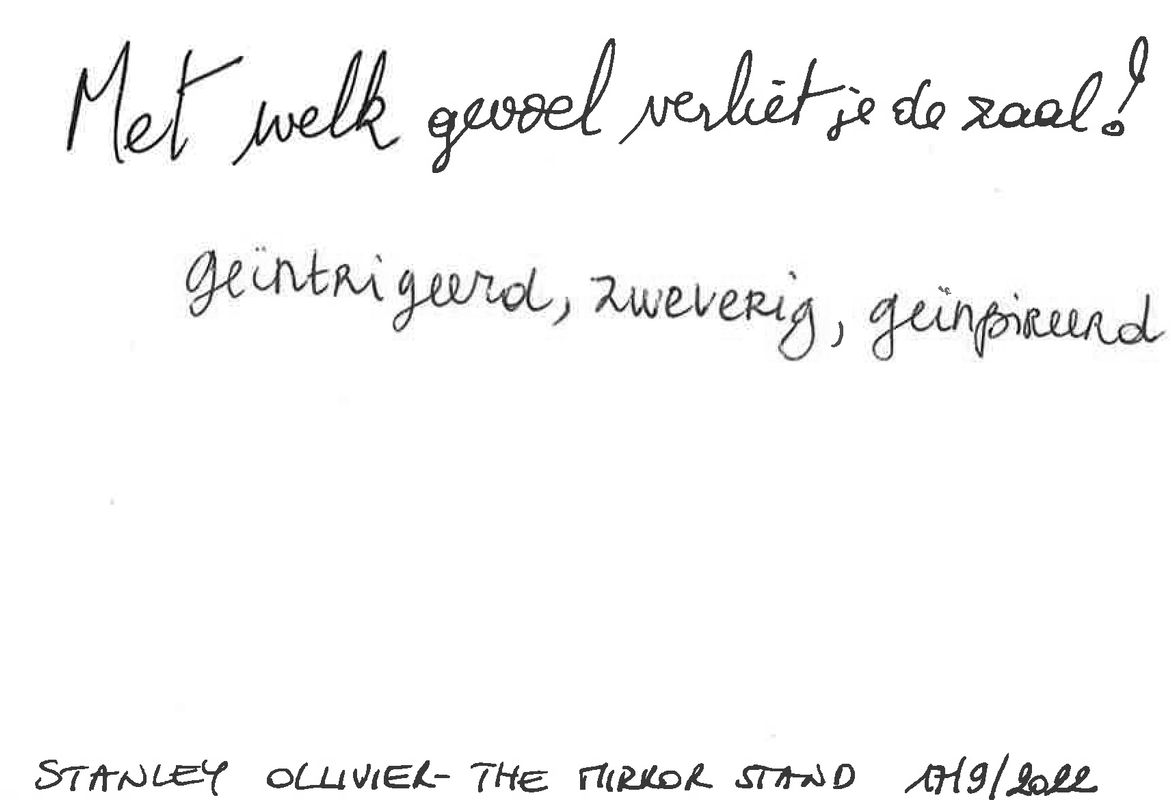 Met welk gevoel verliet je de zaal?
geïntrigeerd, zweverig, geïnpireerd
STANLEY OLLIVIER - THE MIRROR STAND 17/9/2022